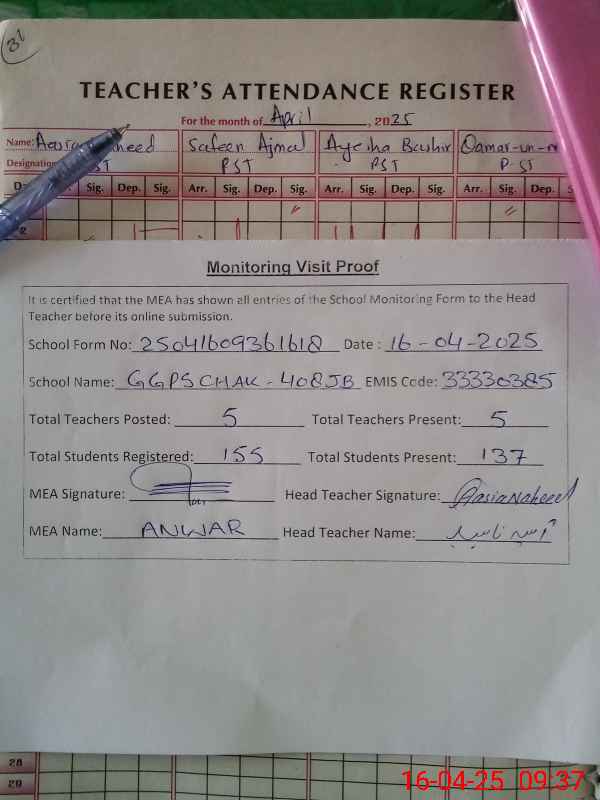 31
TEACHER'S ATTENDANCE REGISTER
For the month of April, 2025
Name: Aasia Naheed Safeen Ajmal Ayesha Bashir Qamar-un-n
Designation PST PST PST P-ST
D Sig. Dep. Sig. Arr. Sig. Dep. Sig. Arr. Sig. Dep. Sig. Arr. Sig. Dep. S
2
Monitoring Visit Proof
It is certified that the MEA has shown all entries of the School Monitoring Form to the Head
Teacher before its online submission.
School Form No: 25041609361618 Date : 16-04-2025
School Name: GGPS CHAK-408JB EMIS Code: 33330385
Total Teachers Posted: 5 Total Teachers Present: 5
Total Students Registered: 155 Total Students Present: 137
MEA Signature: Head Teacher Signature: Aasia Naheed
MEA Name: ANWAR Head Teacher Name: آسیہ ناہید
28
29
16-04-25 09:37